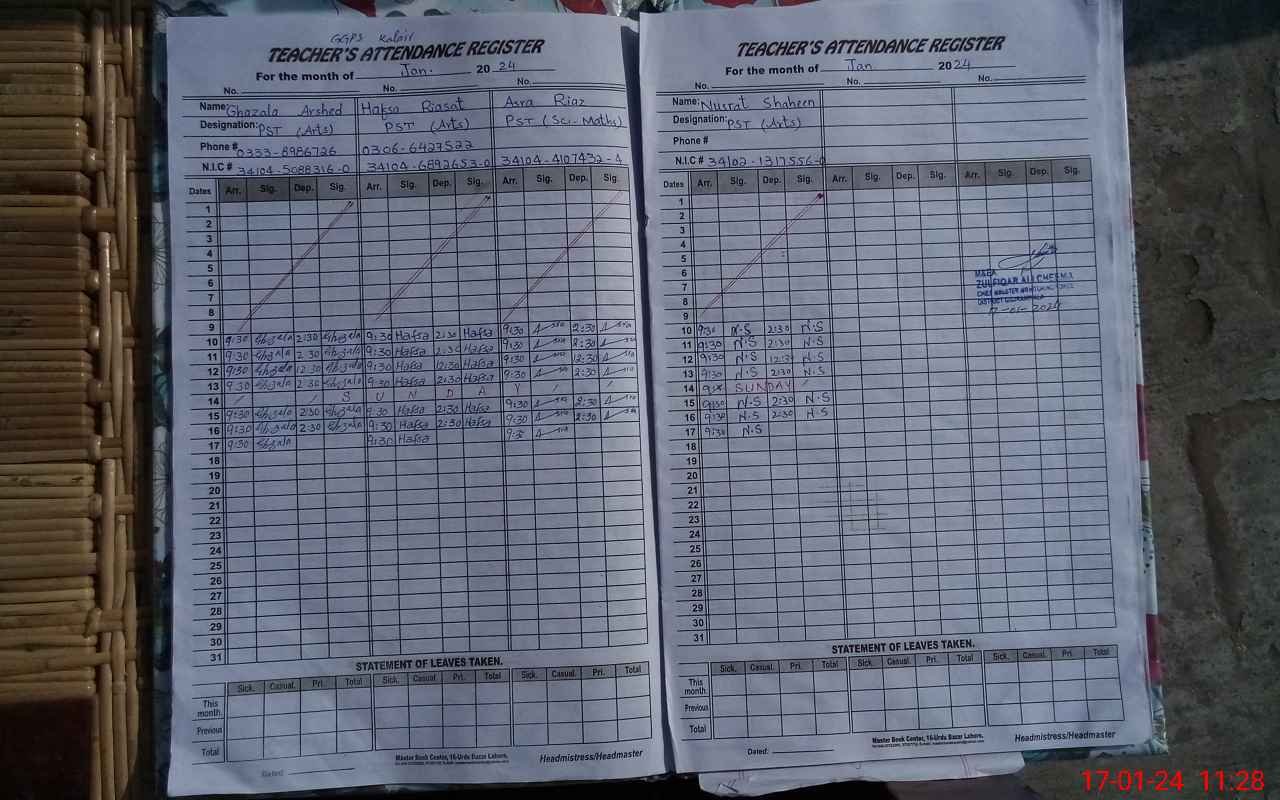 GGPS Kalair
TEACHER'S ATTENDANCE REGISTER
For the month of Jan. 2024
No. No. No.
Name: Ghazala Arshed Hafsa Riasat Asra Riaz
Designation: PST (Arts) PST (Arts) PST (Sci-Maths)
Phone # 0333-8986726 0306-6427522
N.I.C # 34104-5088316-0 34104-6892653-0 34104-4107432-4
Dates Arr. Sig. Dep. Sig. Arr. Sig. Dep. Sig. Arr. Sig. Dep. Sig.
1
2
3
4
5
6
7
8
9
10 9:30 Ghazala 2:30 Ghazala 9:30 Hafsa 2:30 Hafsa 9:30 2:30
11 9:30 Ghazala 2:30 Ghazala 9:30 Hafsa 2:30 Hafsa 9:30 2:30
12 9:30 Ghazala 12:30 Ghazala 9:30 Hafsa 12:30 Hafsa 9:30 12:30
13 9:30 Ghazala 2:30 Ghazala 9:30 Hafsa 2:30 Hafsa 9:30 2:30
14 / / S U N D A Y / /
15 9:30 Ghazala 2:30 Ghazala 9:30 Hafsa 2:30 Hafsa 9:30 2:30
16 9:30 Ghazala 2:30 Ghazala 9:30 Hafsa 2:30 Hafsa 9:30 2:30
17 9:30 Ghazala 9:30 Hafsa 9:30
18
19
20
21
22
23
24
25
26
27
28
29
30
31
STATEMENT OF LEAVES TAKEN.
Sick. Casual. Pri. Total Sick. Casual. Pri. Total Sick. Casual. Pri. Total
This month.
Previous
Total
Master Book Center, 16-Urdu Bazar Lahore.
Dated:
Headmistress/Headmaster
TEACHER'S ATTENDANCE REGISTER
For the month of Jan 2024
No. No. No.
Name: Nusrat Shaheen
Designation: PST (Arts)
Phone #
N.I.C # 34102-1317556-0
Dates Arr. Sig. Dep. Sig. Arr. Sig. Dep. Sig. Arr. Sig. Dep. Sig.
1
2
3
4
5
6
7
8
9
M&EA
ZULFIQAR ALI CHEEMA
CHIEF MINISTER MONITORING FORCE
DISTRICT GUJRANWALA
17-01-2024
10 9:30 N.S 2:30 N.S
11 9:30 N.S 2:30 N.S
12 9:30 N.S 12:30 N.S
13 9:30 N.S 2:30 N.S
14 SUNDAY
15 9:30 N.S 2:30 N.S
16 9:30 N.S 2:30 N.S
17 9:30 N.S
18
19
20
21
22
23
24
25
26
27
28
29
30
31
STATEMENT OF LEAVES TAKEN.
Sick. Casual. Pri. Total Sick. Casual. Pri. Total Sick. Casual. Pri. Total
This month.
Previous
Total
Dated:
Master Book Center, 16-Urdu Bazar Lahore.
Headmistress/Headmaster
17-01-24 11:28